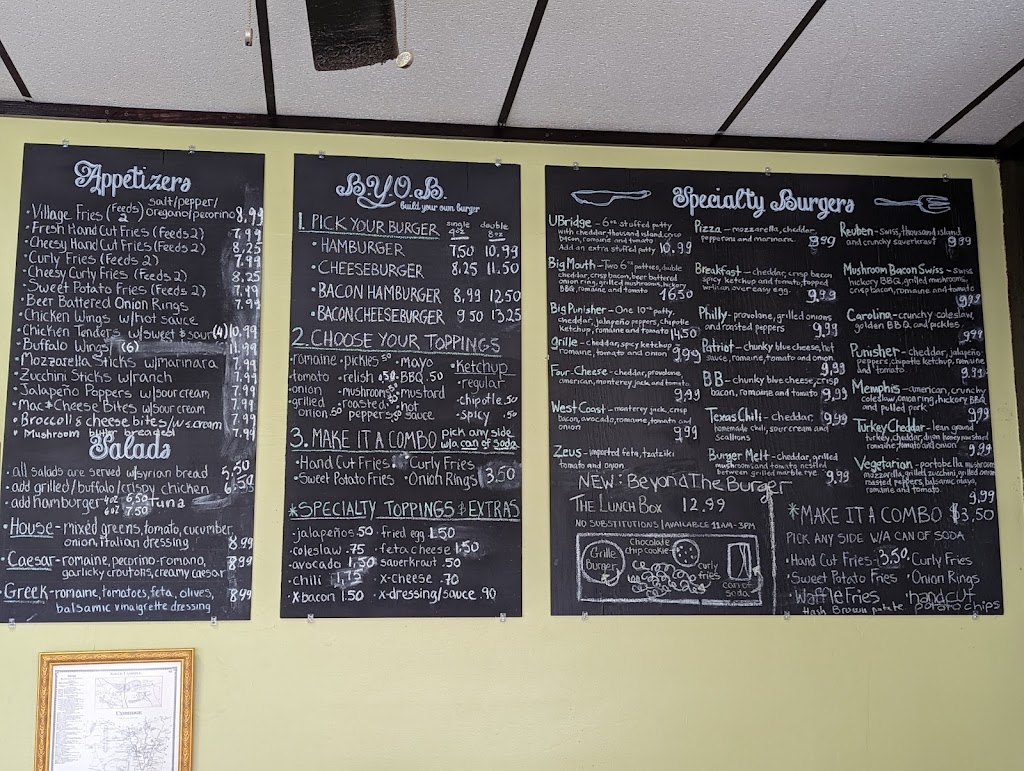 Appetizers
salt/pepper/
•Village Fries (Feeds 2) oregano/pecorino 8.99
•Fresh Hand Cut Fries (Feeds 2) 7.99
•Cheesy Hand Cut Fries (Feeds 2) 8.25
•Curly Fries (Feeds 2) 7.99
•Cheesy Curly Fries (Feeds 2) 8.25
•Sweet Potato Fries (Feeds 2) 7.99
•Beer Battered Onion Rings
•Chicken Wings w/hot sauce
•Chicken Tenders w/sweet & sour (4) 10.99
•Buffalo Wings (6) 11.99
•Mozzarella Sticks w/marinara 7.99
•Zucchini Sticks w/ranch 7.99
•Jalapeño Poppers w/sour cream 7.99
•Mac & Cheese Bites w/sour cream 7.99
•Broccoli & cheese bites/w s.cream 7.99
•Mushroom breaded 7.99
Salads
•all salads are served w/syrian bread
•add grilled/buffalo/crispy chicken 6.59
•add hamburger 4oz 6.50 tuna
6oz 7.50
•House-mixed greens, tomato, cucumber,
onion, italian dressing 8.99
•Caesar-romaine, pecorino-romano,
garlicky croutons, creamy caesar 8.99
•Greek-romaine, tomatoes, feta, olives,
balsamic vinaigrette dressing 8.99
B.Y.O.B.
build your own burger
1. PICK YOUR BURGER single 4oz double 8oz
•HAMBURGER 7.50 10.99
•CHEESEBURGER 8.25 11.50
•BACON HAMBURGER 8.99 12.50
•BACON CHEESEBURGER 9.50 13.25
2. CHOOSE YOUR TOPPINGS
•romaine •pickles .50 •mayo Ketchup
•tomato •relish .50 •BBQ .50 •regular
•onion •mushrooms •mustard •chipotle .50
•grilled onion .50 •roasted peppers •hot sauce •spicy .50
3. MAKE IT A COMBO pick any side w/a can of soda
•Hand Cut Fries •Curly Fries
•Sweet Potato Fries •Onion Rings 3.50
*SPECIALTY TOPPINGS & EXTRAS
•jalapeños .50 •fried egg 1.50
•coleslaw .75 •feta cheese 1.50
•avocado 1.50 •sauerkraut .50
•chili 1.75 •x-cheese .70
•x-bacon 1.50 •x-dressing/sauce .90
Specialty Burgers
UBridge-6oz stuffed patty
with cheddar, thousand island, crisp
bacon, romaine and tomato
Add an extra stuffed patty 10.99
Big Mouth-Two 6oz patties, double
cheddar, crisp bacon, beer battered
onion ring, grilled mushrooms, hickory
BBQ, romaine, and tomato 16.50
Big Punisher-One 10oz patty,
cheddar, jalapeño peppers, chipotle
ketchup, romaine and tomato 14.50
Grille-cheddar, spicy ketchup
romaine, tomato and onion 9.99
Four-Cheese-cheddar, provolone,
american, monterey jack, and tomato
9.99
West Coast-monterey jack, crisp
bacon, avocado, romaine, tomato and
onion 9.99
Zeus-imported feta, tzatziki
tomato and onion
Pizza-mozzarella, cheddar,
pepperoni and marinara. 9.99
Breakfast-cheddar, crisp bacon
spicy ketchup and tomato, topped
w/ an over easy egg. 9.99
Philly-provolone, grilled onions
and roasted peppers 9.99
Patriot-chunky blue cheese, hot
sauce, romaine, tomato and onion
9.99
BB-chunky blue cheese, crisp
bacon, romaine, and tomato 9.99
Texas Chili-cheddar,
homemade chili, sour cream and
scallions 9.99
Burger Melt-cheddar, grilled
mushrooms and tomato nestled
between grilled marble rye 9.99
Reuben-swiss, thousand island
and crunchy sauerkraut 9.99
Mushroom Bacon Swiss-swiss
hickory BBQ, grilled mushrooms,
crisp bacon, romaine, and tomato
9.99
Carolina-crunchy coleslaw,
golden BBQ, and pickles.
9.99
Punisher-cheddar, jalapeño
peppers, chipotle ketchup, romaine
and tomato 9.99
Memphis-american, crunchy
coleslaw, onion ring, hickory BBQ
and pulled pork 9.99
Turkey Cheddar-lean ground
turkey, cheddar, dijon honey mustard
romaine, tomato and onion 9.99
Vegetarian-portobella mushroom
mozzarella, grilled zucchini, grilled onion
roasted peppers, balsamic, mayo,
romaine and tomato. 9.99
NEW: Beyond The Burger
THE LUNCH BOX 12.99
NO SUBSTITUTIONS | AVAILABLE 11AM-3PM
Grille Burger
Chocolate chip cookie
curly fries
can of soda
*MAKE IT A COMBO $3.50
PICK ANY SIDE W/A CAN OF SODA
•Hand Cut Fries-3.50 •Curly Fries
•Sweet Potato Fries •Onion Rings
•Waffle Fries •hand cut potato chips
Hash Brown potato